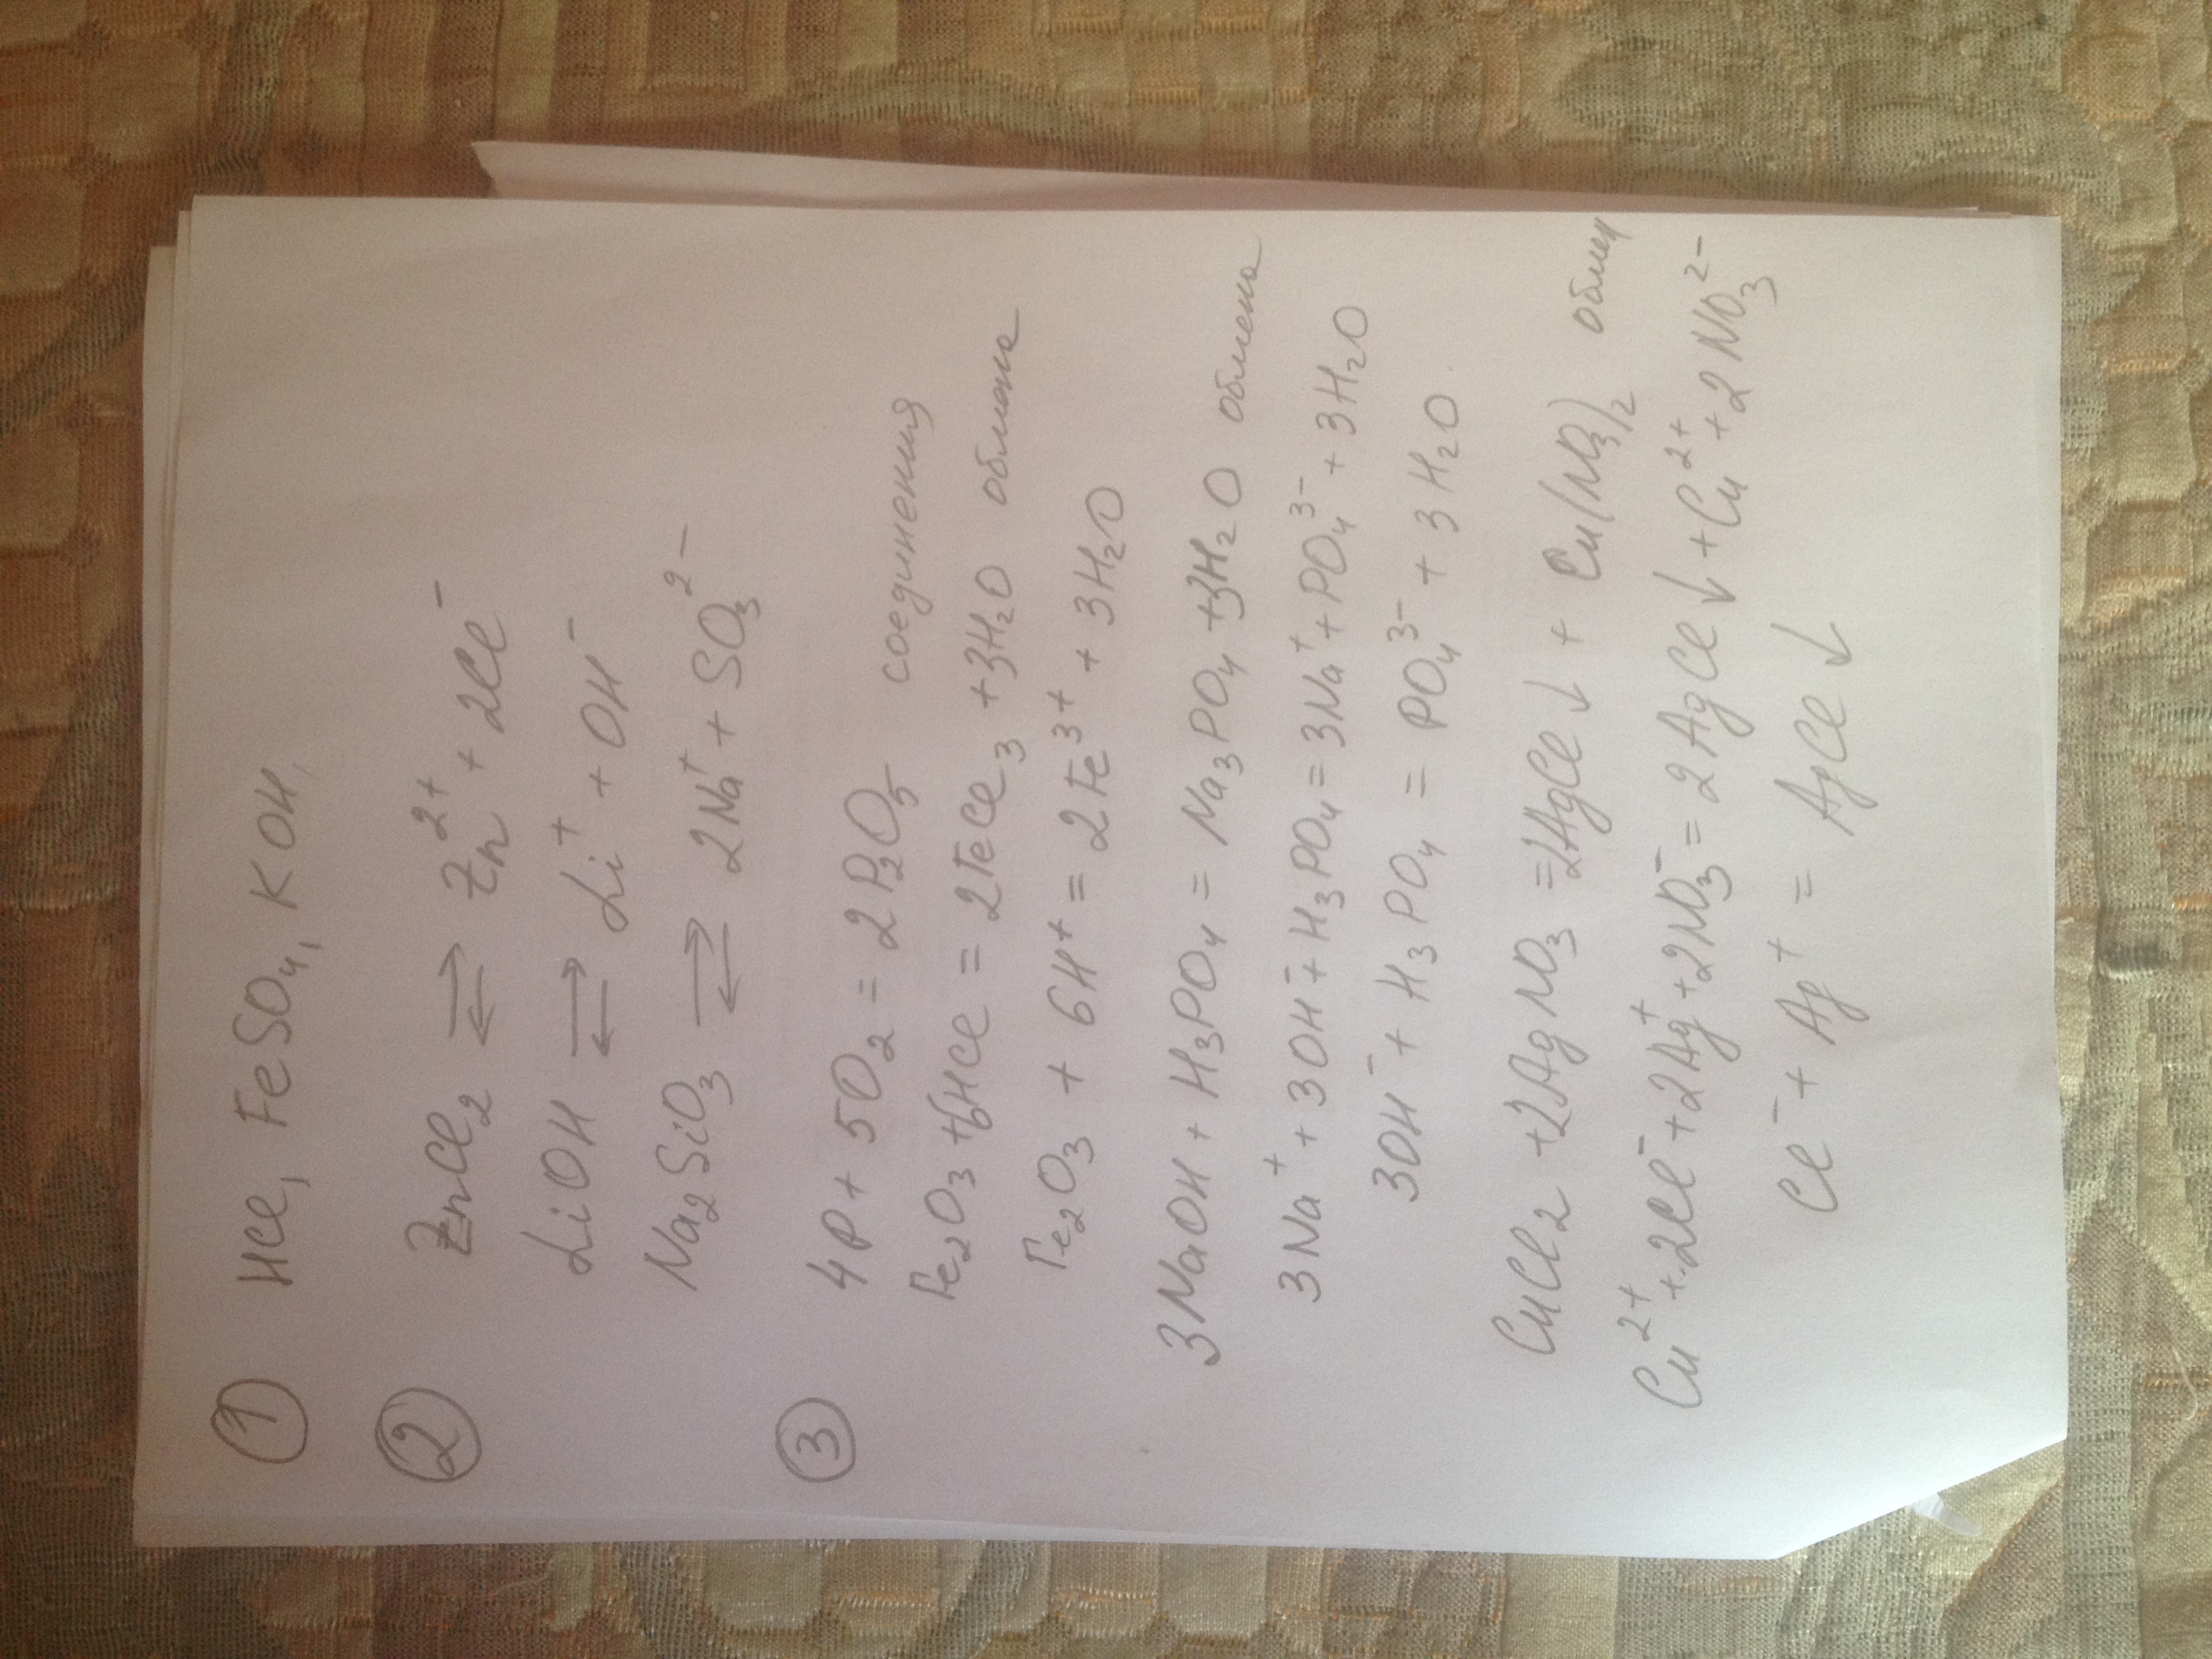 ① HCl, FeSO₄, KOH,
② ZnCl₂ ⇄ Zn²⁺ + 2Cl⁻
LiOH ⇄ Li⁺ + OH⁻
Na₂SiO₃ ⇄ 2Na⁺ + SO₃²⁻
③ 4P + 5O₂ = 2P₂O₅ соединения
Fe₂O₃ + 6HCl = 2FeCl₃ + 3H₂O обмена
Fe₂O₃ + 6H⁺ = 2Fe³⁺ + 3H₂O
3NaOH + H₃PO₄ = Na₃PO₄ + 3H₂O обмена
3Na⁺ + 3OH⁻ + H₃PO₄ = 3Na⁺ + PO₄³⁻ + 3H₂O
3OH⁻ + H₃PO₄ = PO₄³⁻ + 3H₂O
CuCl₂ + 2AgNO₃ = 2AgCl↓ + Cu(NO₃)₂ обмен
Cu²⁺ + 2Cl⁻ + 2Ag⁺ + 2NO₃⁻ = 2AgCl↓ + Cu²⁺ + 2NO₃²⁻
Cl⁻ + Ag⁺ = AgCl↓